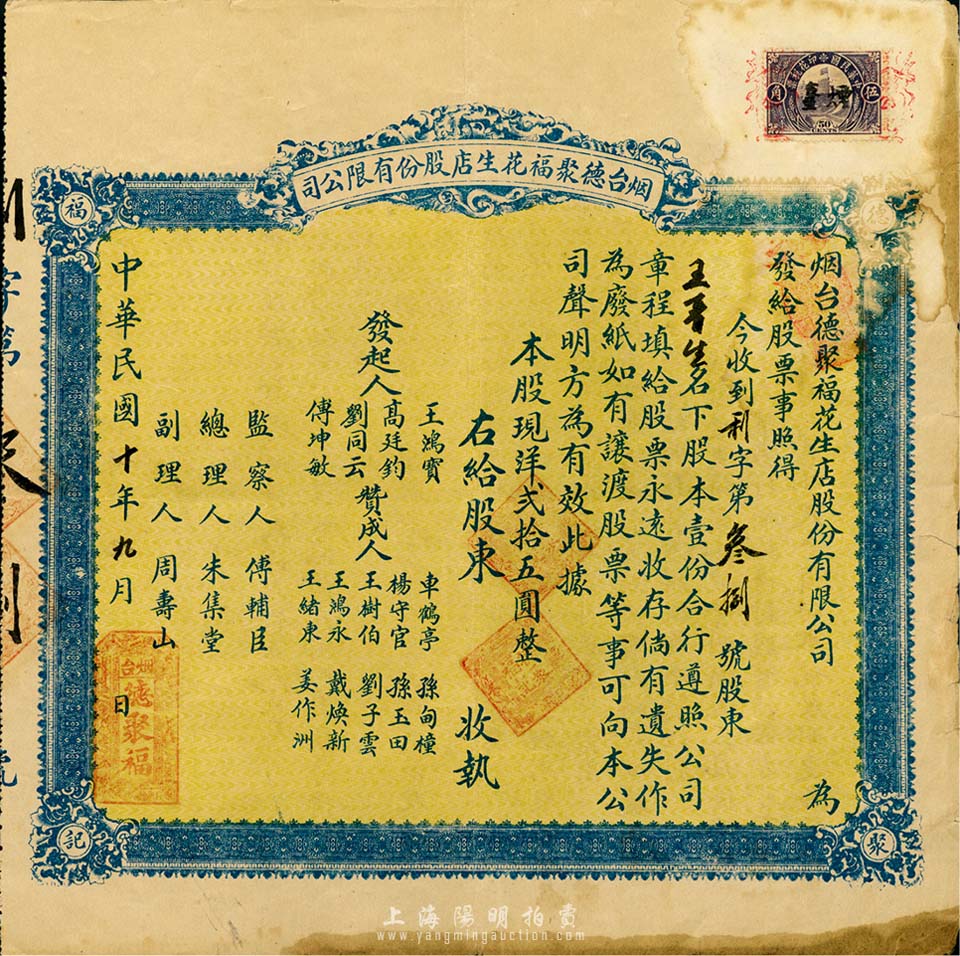 烟台德聚福花生店股份有限公司
德
聚
福
記
中華民國印花稅票
伍
角
50
CENTS
烟台德聚福花生店股份有限公司為
發給股票事照得
今收到利字第叁捌號股東
名下股本壹份合行遵照公司
章程填給股票永遠收存倘有遺失作
為廢紙如有讓渡股票等事可向本公
司聲明方為有效此據
本股現洋弍拾五圓整
右給股東 收執
發起人
王鴻寶
高廷鈞
劉同云
傅坤敏
贊成人
車鶴亭 孫甸橦
楊守官 孫玉田
王樹伯 劉子雲
王鴻永 戴煥新
王緒東 姜作洲
監察人 傅輔臣
總理人 朱集堂
副理人 周壽山
中華民國十年九月 日
烟台
德聚福
上海陽明拍賣
www.yangmingauction.com